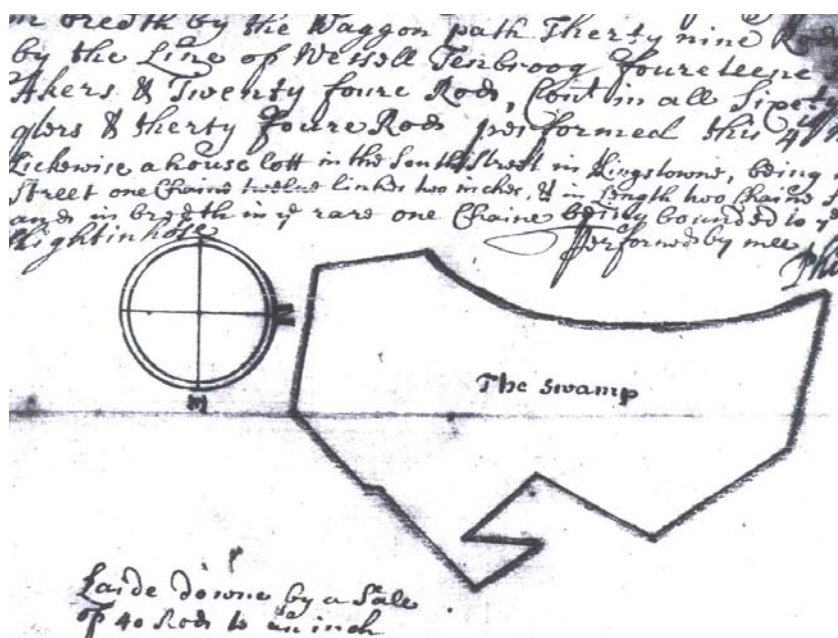 in bredth by the Waggon path Therty nine Rods
by the Line of Wessell Tenbroog foureteene
Akers & Twenty foure Rods, Cont in all Sixety
akers & therty foure Rods performed this 4th
Lickewise a house lott in the South Street in Kingstowne, being
Street one Chaine twelve linkes two inches, & in Length two Chaine
and in bredth in ye rare one Chaine being bounded to ye
Performed by mee
Phi
N
The swamp
E
Laide downe by a Scale
of 40 Rods to an inch